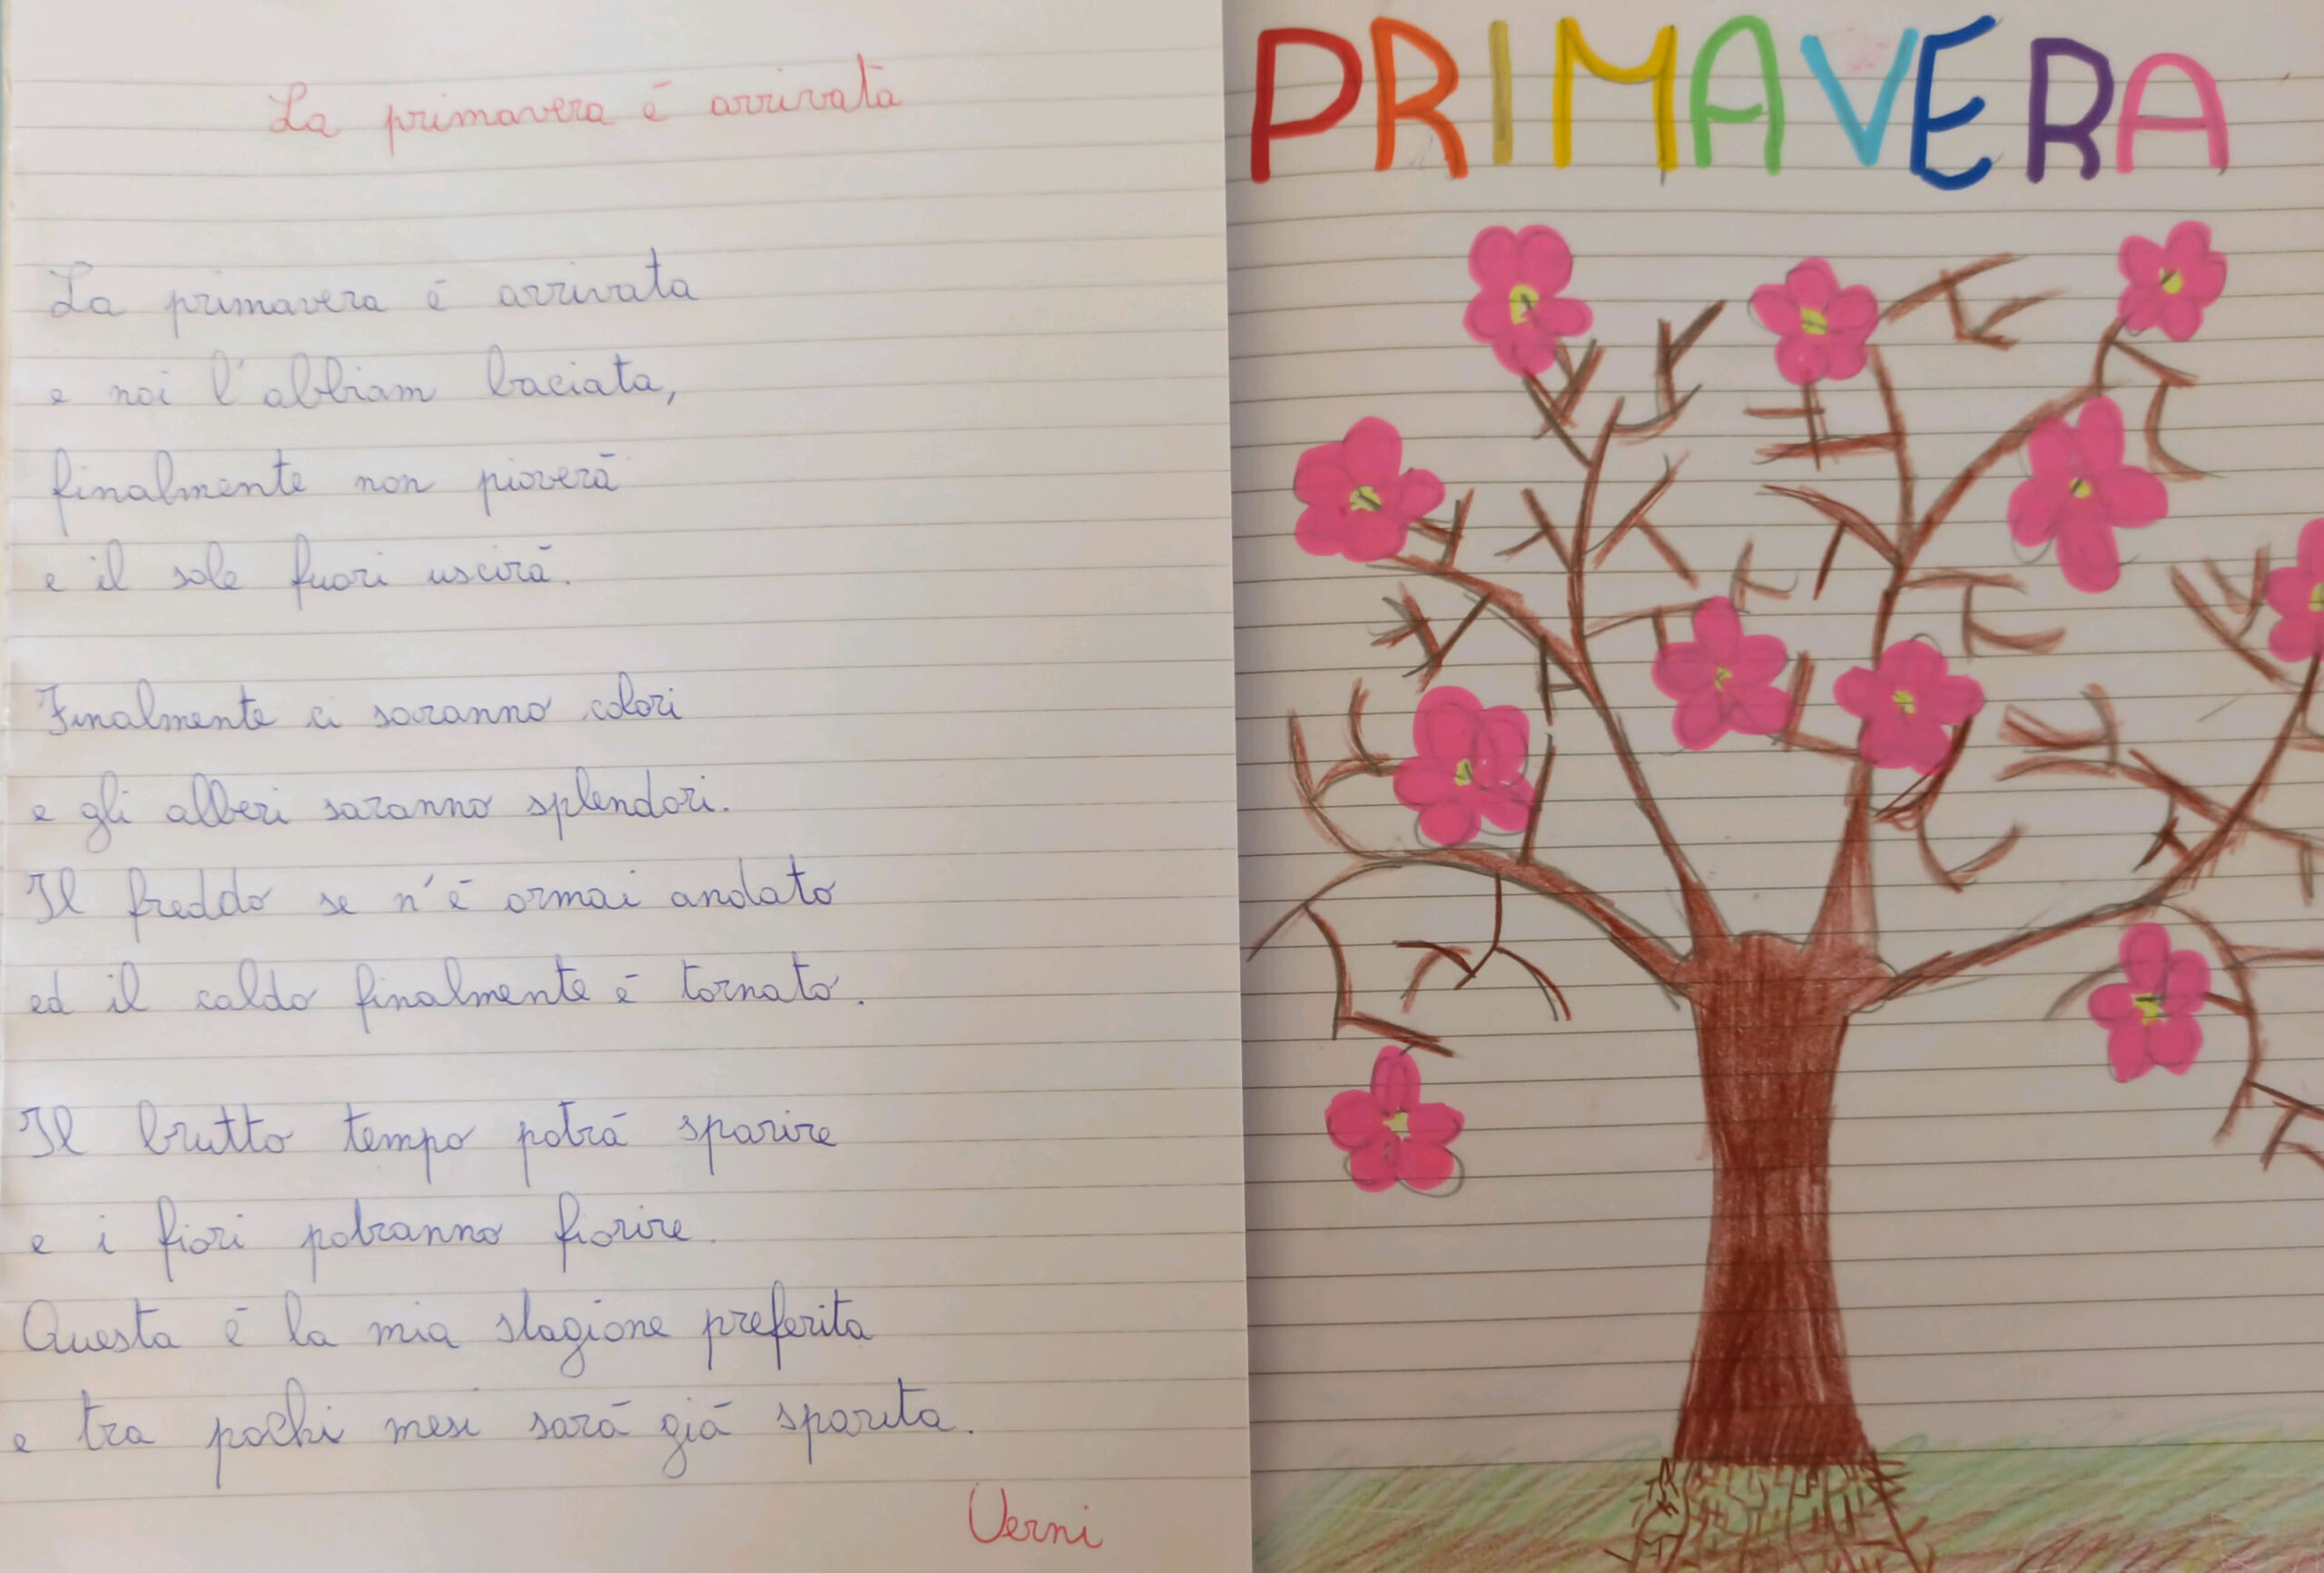 La primavera è arrivata
La primavera è arrivata
e noi l'abbiam baciata,
finalmente non pioverà
e il sole fuori uscirà.
Finalmente ci saranno colori
e gli alberi saranno splendori.
Il freddo se n'è ormai andato
ed il caldo finalmente è tornato.
Il brutto tempo potrà sparire
e i fiori potranno fiorire.
Questa è la mia stagione preferita
e tra pochi mesi sarà già sparita.
Verni
PRIMAVERA